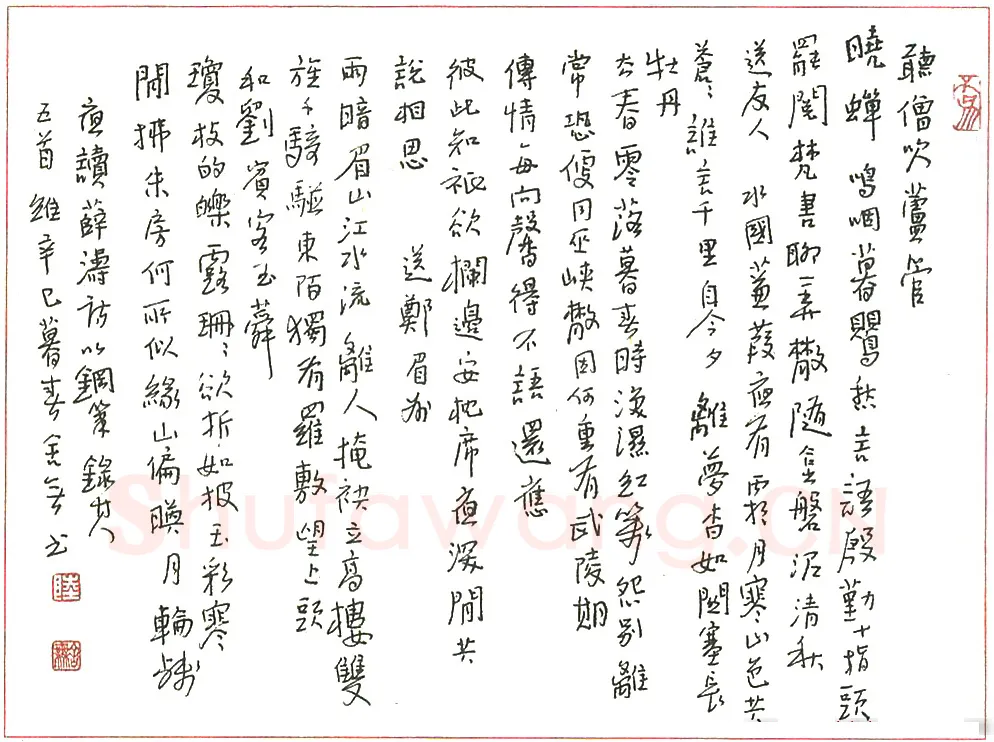 聽僧吹蘆管
曉蟬嗚咽暮鶯愁言語殷勤十指頭
罷閱梵書聊弄散隨金磬泥清秋
送友人 水國蒹葭夜有霜月寒山色共
蒼〻誰言千里自今夕離夢杳如關塞長
牡丹
去春零落暮春時淚濕紅箋怨別離
常恐便同巫峽散因何重有武陵期
傳情每向馨得不語還應
彼此知祗欲欄邊安枕席夜深閒共
說相思 送鄭眉州
雨暗眉山江水流離人掩袂立高樓雙
旌千騎駢東陌獨有羅敷望上頭
和劉賓客玉蕣
瓊枝的皪露珊〻欲折如披玉彩寒
閒拂朱房何所似緣山偏映月輪殘
夜讀薛濤詩以鋼筆錄其
五首 維辛巳暮春 書
Shufawang.CN